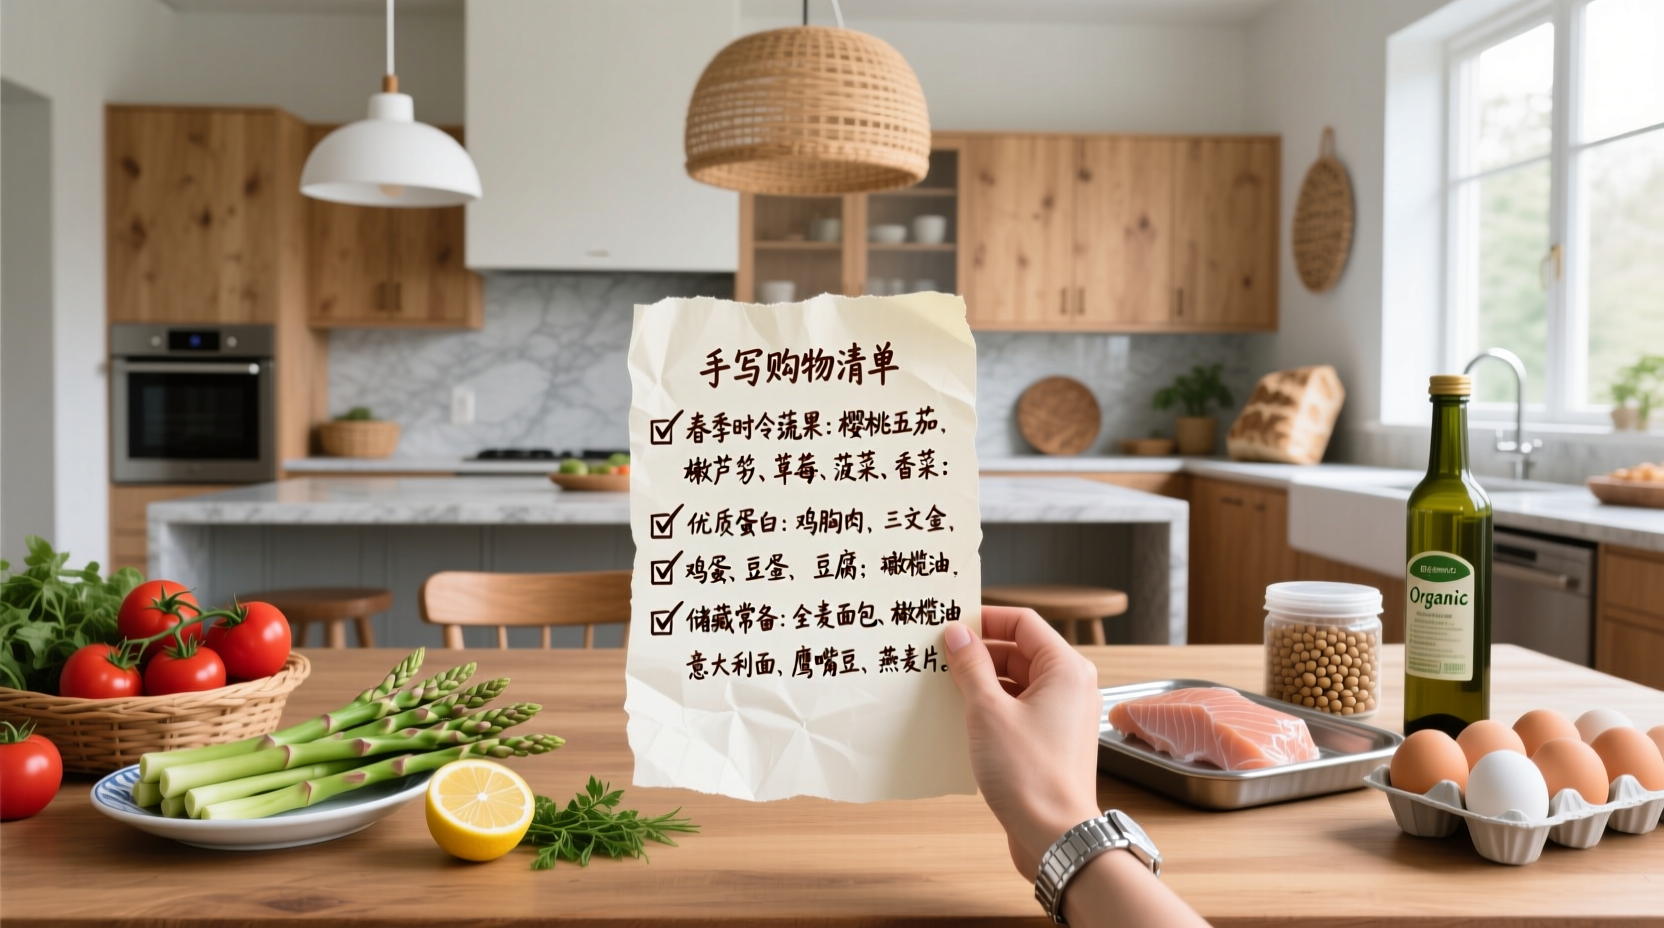 手写购物清单
春季时令蔬果：樱桃五茄，
嫩芦笋、草莓、菠菜、香菜：
优质蛋白：鸡胸肉，三文金，
鸡蛋、豆蛋、豆腐；橄榄油，
储藏常备：全麦面包、橄榄油
意大利面、鹰嘴豆、燕麦片。
Organic